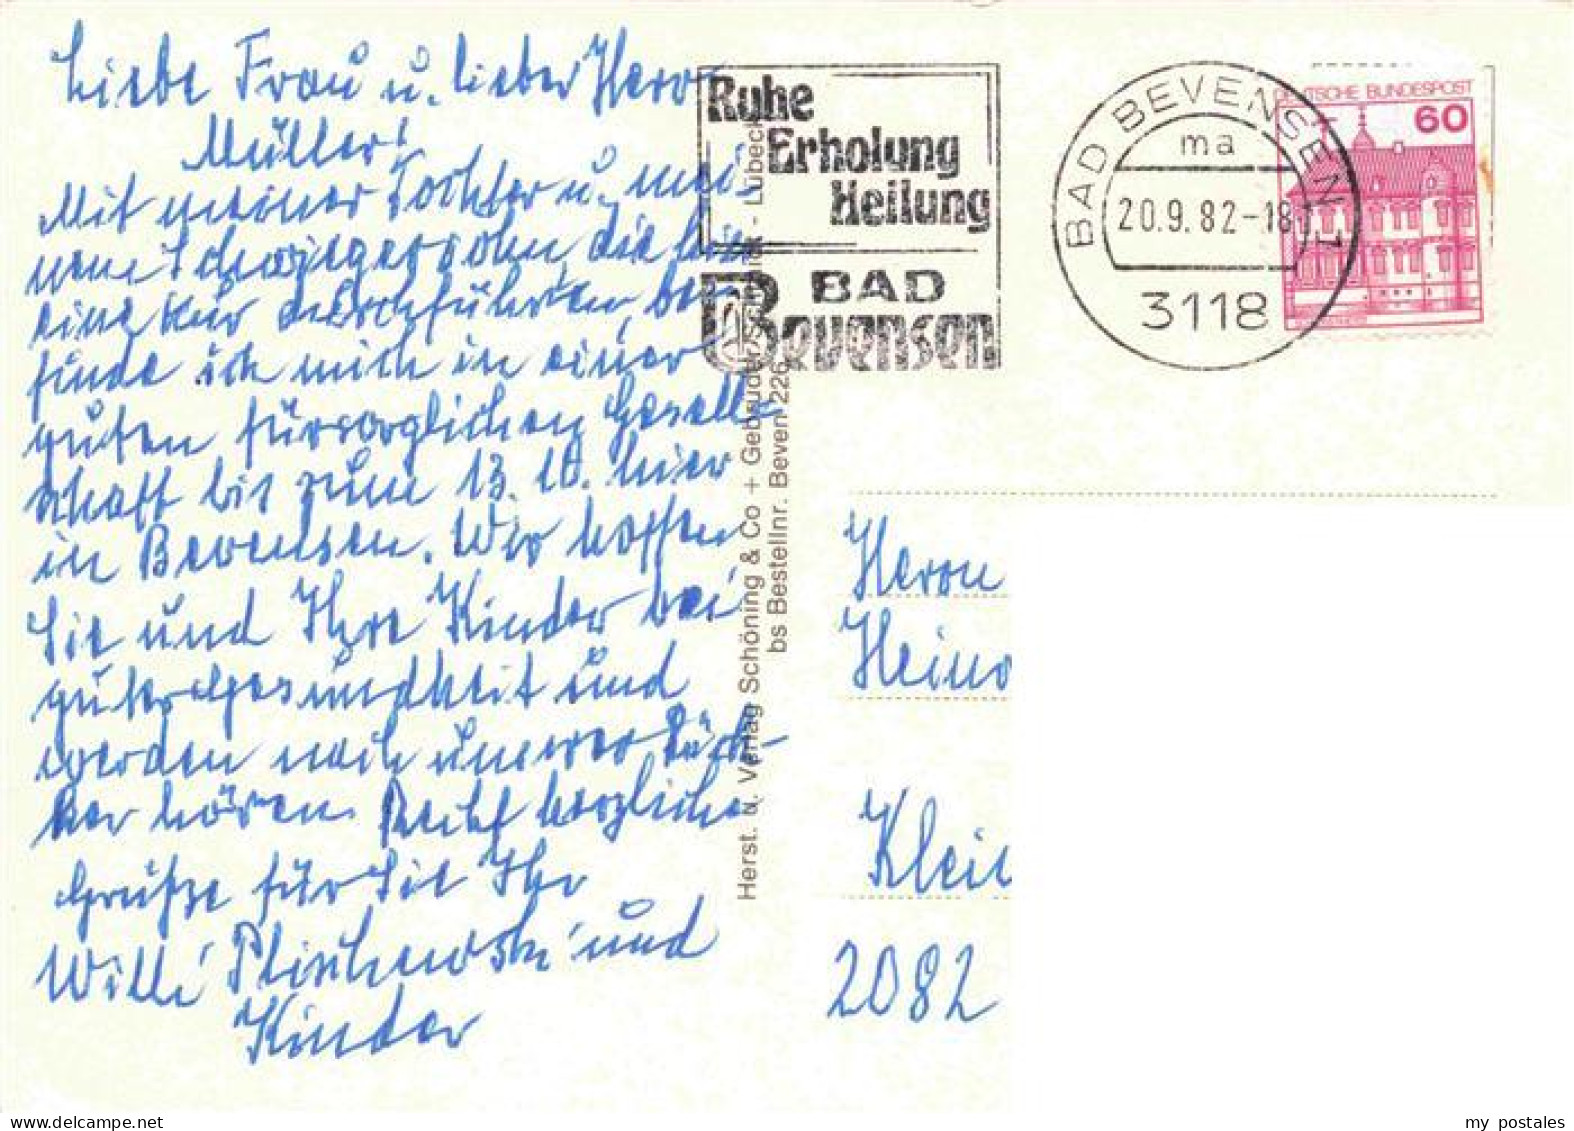 Liebe Frau u. lieber Herr
Müller!
Mit meiner Tochter u. mei-
nem Schwiegersohn die hier
eine Kur durchführten be-
finde ich mich in einer
guten fürsorglichen Gesell=
schaft bis zum 13. 10. hier
in Bevensen. Wir hoffen
Sie und Ihre Kinder bei
guter Gesundheit und
werden nach unserer Rück-
ker hören. Recht herzliche
Grüße für Sie Ihr
Willi Plischewski und
Kinder
Herst. u. Verlag Schöning & Co + Gebrüder Schmidt - Lübeck
bs Bestellnr. Beven 226
Ruhe
Erholung
Heilung
BAD
Bevensen
BAD BEVENSEN 1
ma
20.9.82-18
3118
DEUTSCHE BUNDESPOST
60
Herrn
Heinr
Klei
2082
my postales